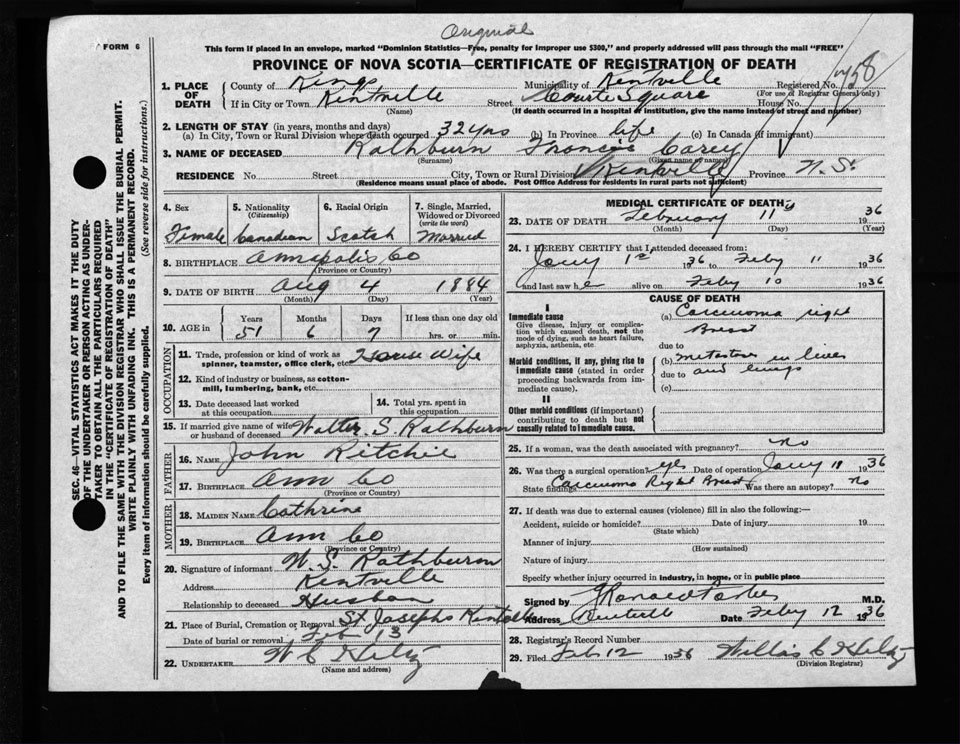 Original
FORM 6
This form if placed in an envelope, marked "Dominion Statistics—Free, penalty for improper use $300," and properly addressed will pass through the mail "FREE"
PROVINCE OF NOVA SCOTIA—CERTIFICATE OF REGISTRATION OF DEATH
SEC. 46—VITAL STATISTICS ACT MAKES IT THE DUTY
OF THE UNDERTAKER OR PERSON ACTING AS UNDER-
TAKER TO OBTAIN ALL THE PARTICULARS REQUIRED
IN THE "CERTIFICATE OF REGISTRATION OF DEATH"
AND TO FILE THE SAME WITH THE DIVISION REGISTRAR WHO SHALL ISSUE THE BURIAL PERMIT.
WRITE PLAINLY WITH UNFADING INK. THIS IS A PERMANENT RECORD.
Every item of information should be carefully supplied. (See reverse side for instructions.)
1. PLACE OF DEATH
County of Kings Municipality of Kentville Registered No.
(For use of Registrar General only)
If in City or Town Kentville Street Courte Square House No.
(Name) (If death occurred in a hospital or institution, give the name instead of street and number)
2. LENGTH OF STAY (in years, months and days)
(a) In City, Town or Rural Division where death occurred 32 yrs (b) In Province life (c) In Canada (if immigrant)
3. NAME OF DECEASED Rathburn Francis Carey
(Surname) (Given name or names)
RESIDENCE No. Street City, Town or Rural Division Kentville Province N.S.
(Residence means usual place of abode. Post Office Address for residents in rural parts not sufficient)
4. Sex Female
5. Nationality (Citizenship) Canadian
6. Racial Origin Scotch
7. Single, Married, Widowed or Divorced (write the word) Married
8. BIRTHPLACE Annapolis Co
(Province or Country)
9. DATE OF BIRTH Aug 4 1884
(Month) (Day) (Year)
10. AGE in Years 51 Months 6 Days 7 If less than one day old hrs. or min.
OCCUPATION
11. Trade, profession or kind of work as spinner, teamster, office clerk, etc. House Wife
12. Kind of industry or business, as cotton-mill, lumbering, bank, etc.
13. Date deceased last worked at this occupation
14. Total yrs. spent in this occupation
15. If married give name of wife or husband of deceased Walter S. Rathburn
FATHER
16. NAME John Ritchie
17. BIRTHPLACE Ann Co
(Province or Country)
MOTHER
18. MAIDEN NAME Cathrine
19. BIRTHPLACE Ann Co
(Province or Country)
20. Signature of informant W. S. Rathburn
Address Kentville
Relationship to deceased Husban
21. Place of Burial, Cremation or Removal St Josephs Kentville
Date of burial or removal Feb 13
22. UNDERTAKER W C Hiltz
(Name and address)
MEDICAL CERTIFICATE OF DEATH
23. DATE OF DEATH February 11 1936
(Month) (Day) (Year)
24. I HEREBY CERTIFY that I attended deceased from:
Jany 1st 1936 to Feby 11 1936
and last saw h e alive on Feby 10 1936
CAUSE OF DEATH
I
Immediate cause
Give disease, injury or complication which caused death, not the mode of dying, such as heart failure, asphyxia, asthenia, etc
(a) Carcinoma right
Breast
due to
Morbid conditions, if any, giving rise to immediate cause (stated in order proceeding backwards from immediate cause).
(b) metastases in liver
due to and lungs
(c)
II
Other morbid conditions (if important) contributing to death but not causally related to immediate cause.
25. If a woman, was the death associated with pregnancy? no
26. Was there a surgical operation? yes Date of operation Jany 11 1936
State findings Carcinoma Right Breast Was there an autopsy? no
27. If death was due to external causes (violence) fill in also the following:—
Accident, suicide or homicide? Date of injury 19
(State which)
Manner of injury
(How sustained)
Nature of injury
Specify whether injury occurred in industry, in home, or in public place
Signed by M.D.
Address Date Feby 12 1936
28. Registrar's Record Number
29. Filed Feb 12 1936 Willis C Hiltz
(Division Registrar)